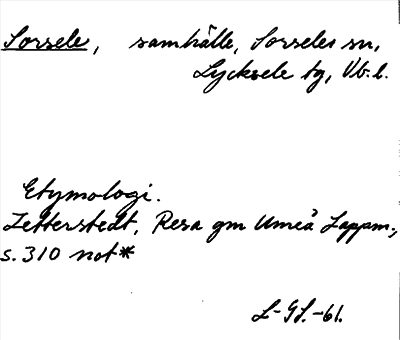 Sorsele, samhälle, Sorseles sn,
Lycksele tg, Vb. l.
Etymologi.
Zetterstedt, Resa gm Umeå Lappm.,
s. 310 not*
L-GL.-61.